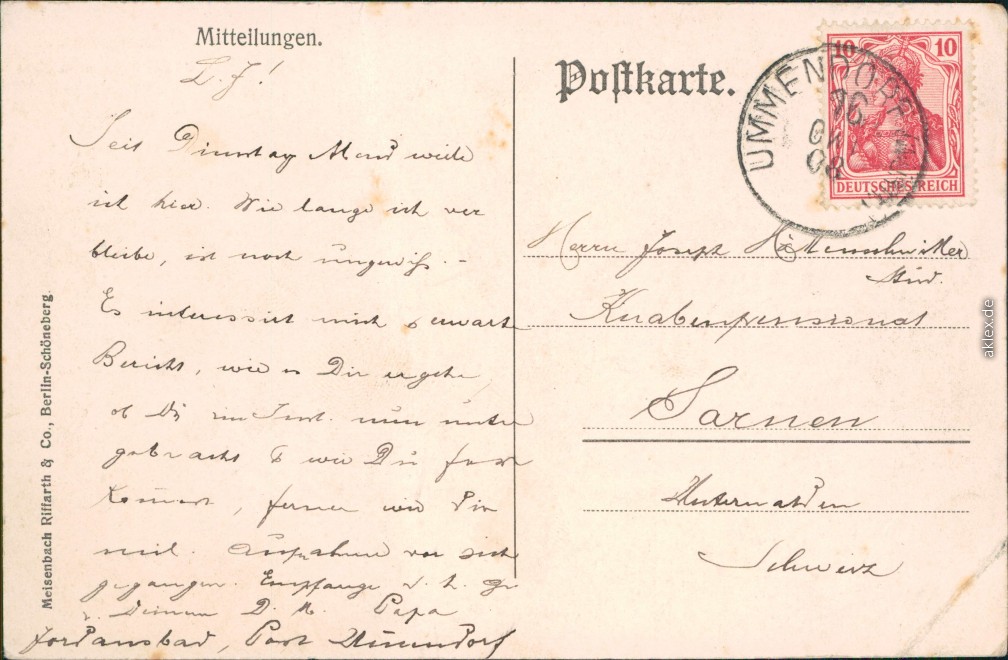 Mitteilungen.
L. J!
Seit Dienstag Abend weile
ich hier. Wie lange ich ver
bleibe, ist noch ungewiß. -
Es interessirt mich & erwarte
Bericht, wie es Dir ergehe,
ob Du im Inst. nun unter
gebracht & wie Du fort
kommst, ferner wie Die
mil. Aufnahme vor sich
gegangen. Empfange
v. Deinem Papa
Jordansbad, Post Ummendorf
Postkarte.
10 10
DEUTSCHES REICH
UMMENDORF
08
Herrn Joseph
Stud.
Knabenpensionat
Sarnen
Unterwalden
Schweiz
Meisenbach Riffarth & Co., Berlin-Schöneberg.
aklex.de